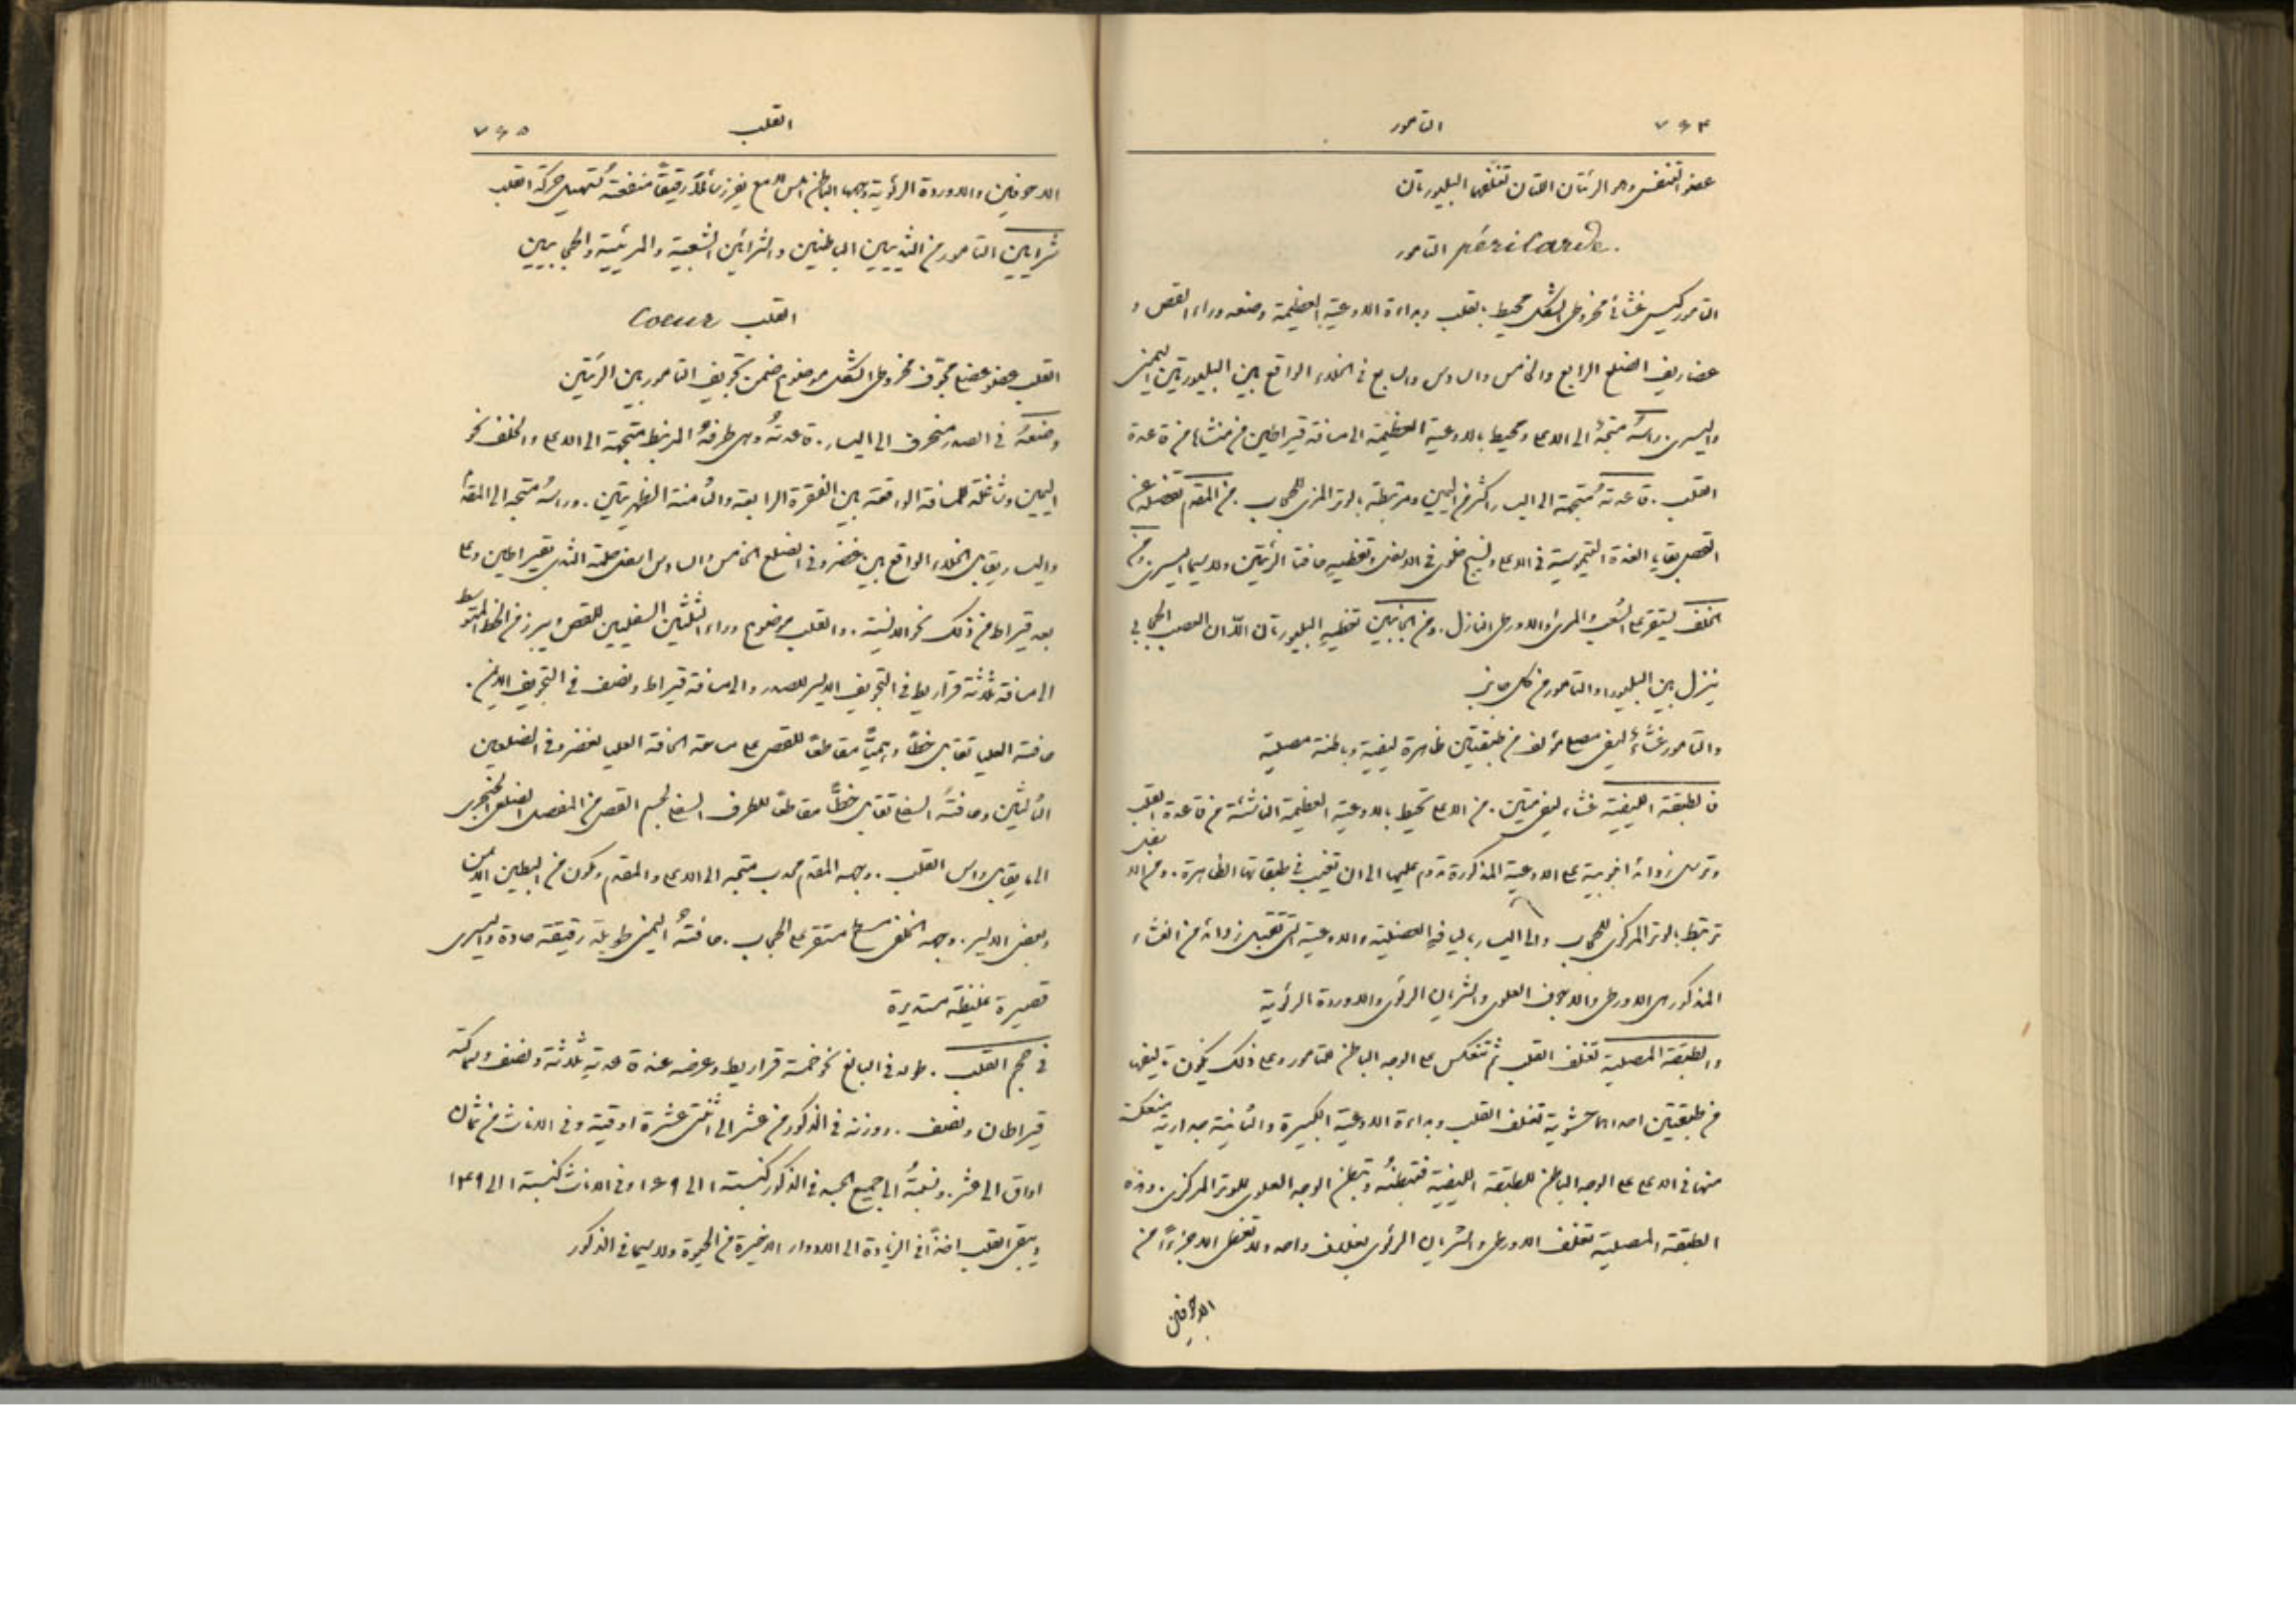 ٧٦٤ التامور
عضو التنفس وهو الرئتان اللتان تغلفهما البليوراتان
péricarde. التامور
التامور كيس غشائي مخروطي الشكل محيط بالقلب وبداءة الاوعية العظيمة وضعه وراء القص و
غضاريف الضلع الرابع والخامس والسادس والسابع في الخلاء الواقع بين البليوراتين اليمنى
واليسرى. راسه متجه الى الاعلى ومحيط بالاوعية العظيمة الى مسافة قيراطين من منشاها من قاعدة
القلب. قاعدته متجهة الى اليسار اكثر من اليمين ومرتبطة بالوتر المركزي للحجاب. من المقدم تفصله عن
القص بقايا الغدة التيموسية في الاعلى ونسيج خلوي في الاسفل وتغطيه حافتا الرئتين ولا سيما اليسرى. ومن
الخلف يستقر على الشعب والمري والاورطي النازل. ومن الجانبين تغطيه البليوراتان اللذان العصب الحجابي
ينزل بين البليورا والتامور من كل جانب
والتامور غشاء ليفي مصلي مؤلف من طبقتين ظاهرة ليفية وباطنة مصلية
فالطبقة الليفية غشاء ليفي متين. من الاعلى تحيط بالاوعية العظيمة الناشئة من قاعدة القلب
وترسل زوائد انبوبية على الاوعية المذكورة تدوم عليها الى ان تغيب في طبقاتها الظاهرة. ومن الاسفل
ترتبط بالوتر المركزي للحجاب والى اليسار باليافه العضلية والاوعية التي تقبل زوائد من الغشاء
المذكور هي الاورطي والاجوف العلوي والشريان الرئوي والاوردة الرئوية
والطبقة المصلية تغلف القلب ثم تنعكس على الوجه الباطن للتامور وعلى ذلك يكون تاليفها
من طبقتين احداهما حشوية تغلف القلب وبداءة الاوعية الكبيرة والثانية جدارية منعكسة
منها في الاعلى على الوجه الباطن للطبقة الليفية فتبطنه وتبطن الوجه العلوي للوتر المركزي. وهذه
الطبقة المصلية تغلف الاورطي والشريان الرئوي بغلاف واحد ولا تغطي الا جزءًا من
الاجوفين
القلب ٧٦٥
الاجوفين والاوردة الرئوية وجهها الباطن املس لامع يفرز سائلاً رقيقًا منفعته تسهيل حركة القلب
شرايين التامور من الثدييين الباطنين والشرايين الشعبية والمريئية والحجابيين
القلب Coeur
القلب عضو عضلي مجوف مخروطي الشكل موضوع ضمن تجويف التامور بين الرئتين
وضعه في الصدر منحرف الى اليسار. قاعدته وهي طرفه المرتبط متجهة الى الاعلى والخلف نحو
اليمين وشاغلة للمسافة الواقعة بين الفقرة الرابعة والثامنة الظهريتين. وراسه متجه الى المقدم
واليسار يقابل الخلاء الواقع بين غضروفي الضلع الخامس والسادس اسفل حلمة الثدي بقيراطين وعلى
بعد قيراط من ذلك نحو الانسية. والقلب موضوع وراء الثلثين السفليين للقص ويبرز من الخط المتوسط
الى مسافة ثلاثة قراريط في التجويف الايسر للصدر والى مسافة قيراط ونصف في التجويف الايمن.
حافته العليا تقابل خطًا وهميًا مقاطعًا للقص على مساحة الحافة العليا لغضروفي الضلعين
الثالثين وحافته السفلى تقابل خطًا مقاطعًا للطرف السفلي لجسم القص من المفصل الضلعي الخنجري
الى ما يقابل راس القلب. وجهه المقدم محدب متجه الى الاعلى والمقدم ومكون من البطين الايمن
وبعض الايسر. وجهه الخلفي مسطح مستقر على الحجاب. حافته اليمنى طويلة رقيقة حادة واليسرى
قصيرة غليظة مستديرة
في حجم القلب. طوله في البالغ نحو خمسة قراريط وعرضه عند قاعدته ثلاثة ونصف وسماكته
قيراطان ونصف. ووزنه في الذكور من عشر الى اثنتي عشرة اوقية وفي الاناث من ثمان
اواق الى عشر. ونسبته الى جميع الجسد في الذكور كنسبة ١ الى ١٦٩ وفي الاناث كنسبة ١ الى ١٤٩
ويبقى القلب اخذًا في الزيادة الى الادوار الاخيرة من الحيوة ولا سيما في الذكور